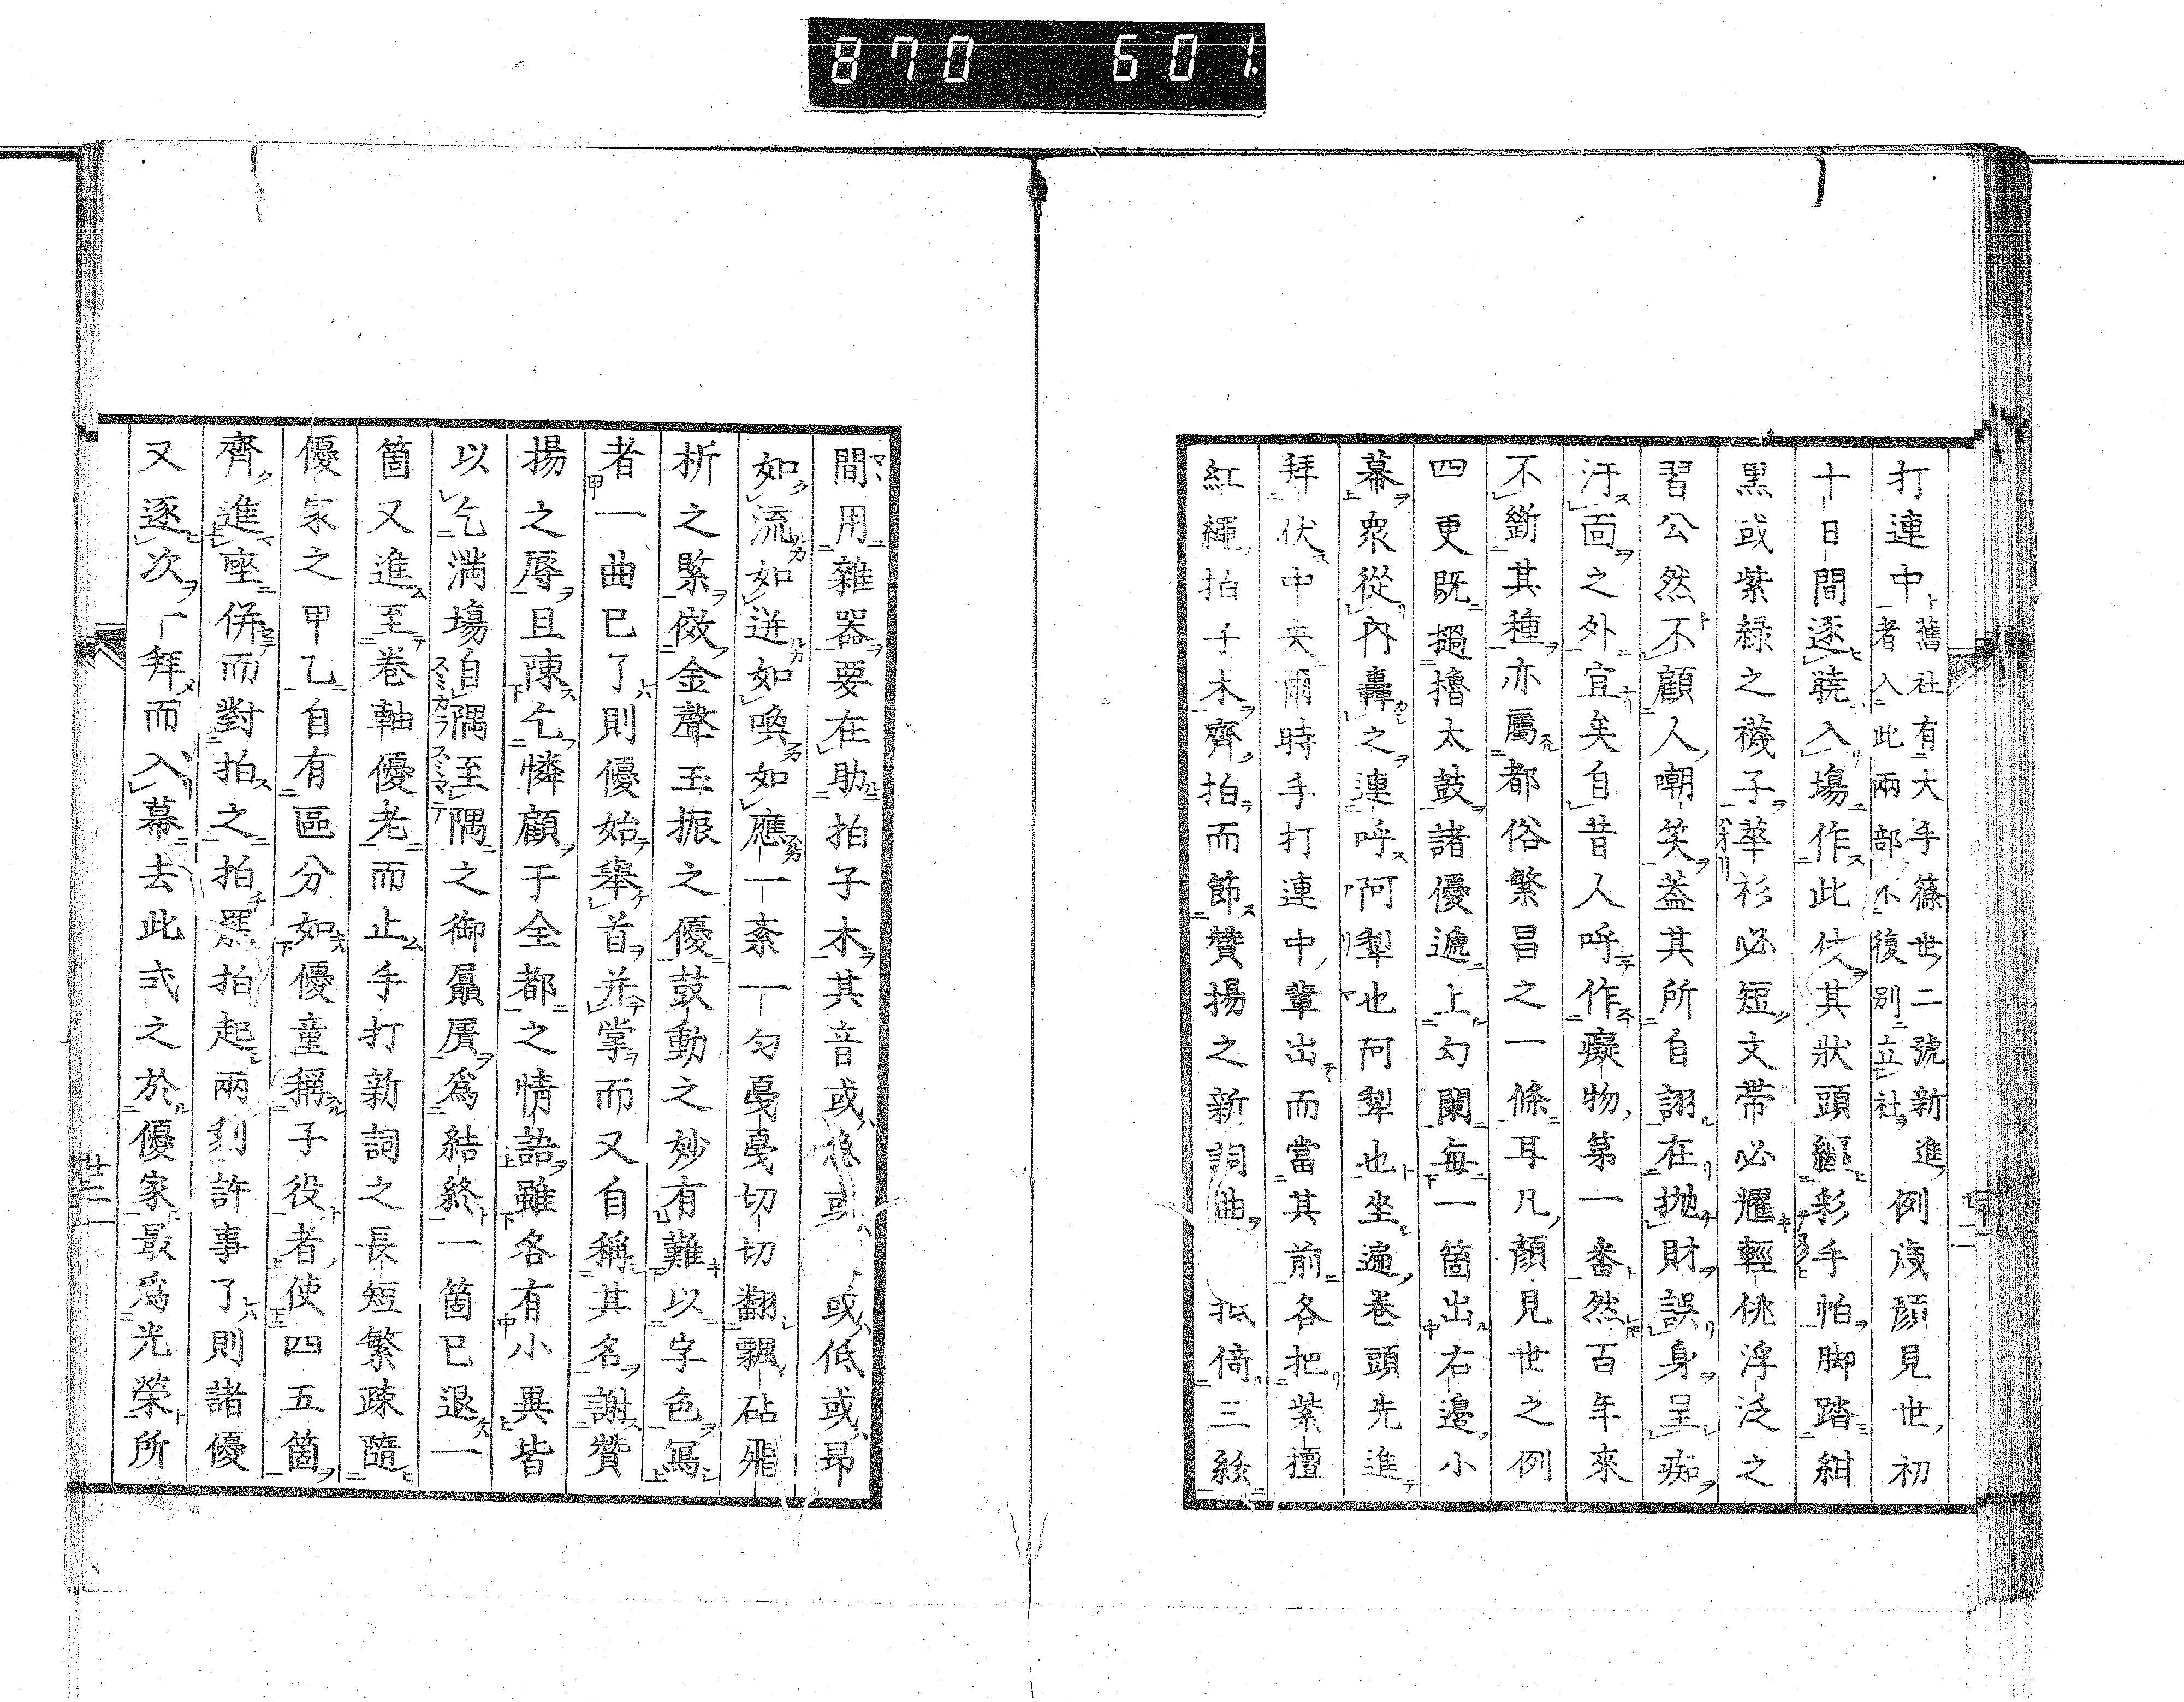 870 601
打連中舊社有大手篠世二號新進者入此兩部不復別立社例歳顔見世初
十日間逐曉入場作此伎其狀頭纒彩手帕脚踏紺
黒或紫緑之襪子華衫必短文帯必耀輕佻浮泛之
習公然不顧人嘲笑蓋其所自詡在抛財誤身呈痴
汙面之外宜矣自昔人呼作癡物第一番然百年來
不斷其種亦屬都俗繁昌之一條耳凡顔見世之例
四更既撾擼太鼓諸優遞上勾闌毎一箇出右邊小
幕衆從内轟之連呼阿犁也阿犁也坐遍巻頭先進
拜伏中央爾時手打連中輩出而當其前各把紫檀
紅繩拍子木齊拍而節賛揚之新詞曲 抵倚三絃
間用雜器要在助拍子木其音或急或 或低或昂
如流如迸如喚如應一紊一匀戞戞切切翻飄砧飛
析之緊傚金聲玉振之優鼓動之妙有難以字色寫
者一曲已了則優始舉首并掌而又自稱其名謝賛
揚之辱且陳乞憐顧于全都之情語雖各有小異皆
以乞満場自隅至隅之御贔屓爲結終一箇已退一
箇又進至巻軸優老而止手打新詞之長短繁疎隨
優家之甲乙自有區分如優童稱子役者使四五箇
齊進座併而對拍之拍罷拍起兩刻許事了則諸優
又逐次一拜而入幕去此式之於優家最爲光榮所
廿二